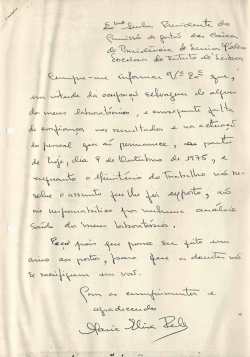 Exmo Senhor Presidente da
Comissão de gestão das Caixas
de Previdência e Serviços Médico
sociais do Distrito de Lisboa
Cumpre-me informar V. Exa que,
em virtude da ocupação selvagem de alguns
dos meus laboratórios, e consequente falta
de confiança nos resultados e na actuação
do pessoal que aí permanece, a partir
de hoje, dia 9 de Outubro de 1975, e
enquanto o Ministério do Trabalho não re-
solve o assunto que lhe foi exposto, não
me responsabilizo por nenhuma análise
saída dos meus laboratórios.
Peço pois que possa ser feito um
aos postos, para que os doentes não
se sacrifiquem em vão.
Com os cumprimentos e
agradecendo
Maria